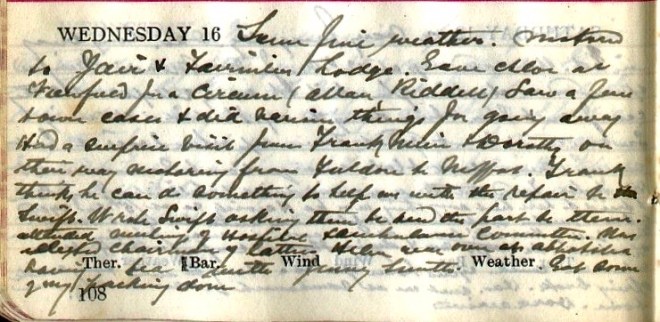 WEDNESDAY 16 Same fine weather. Motored
to Yair & Lodge. Gave chlor at
for a Circum (Allan Riddell) Saw a few
town cases & did various things for going away
Had a surprise visit from Frank & Dorothy on
their way motoring from to Moffat. Frank
thinks he can do something to help us with the repair to the
Swift. Wrote Swift asking them to send the part to them.
Attended meeting of Hospital & Ambulance Committee. Was
elected Chairman of latter. Helen was over at Abbotsford
having tea quite . Got some
of my packing done
Ther. Bar. Wind Weather
108